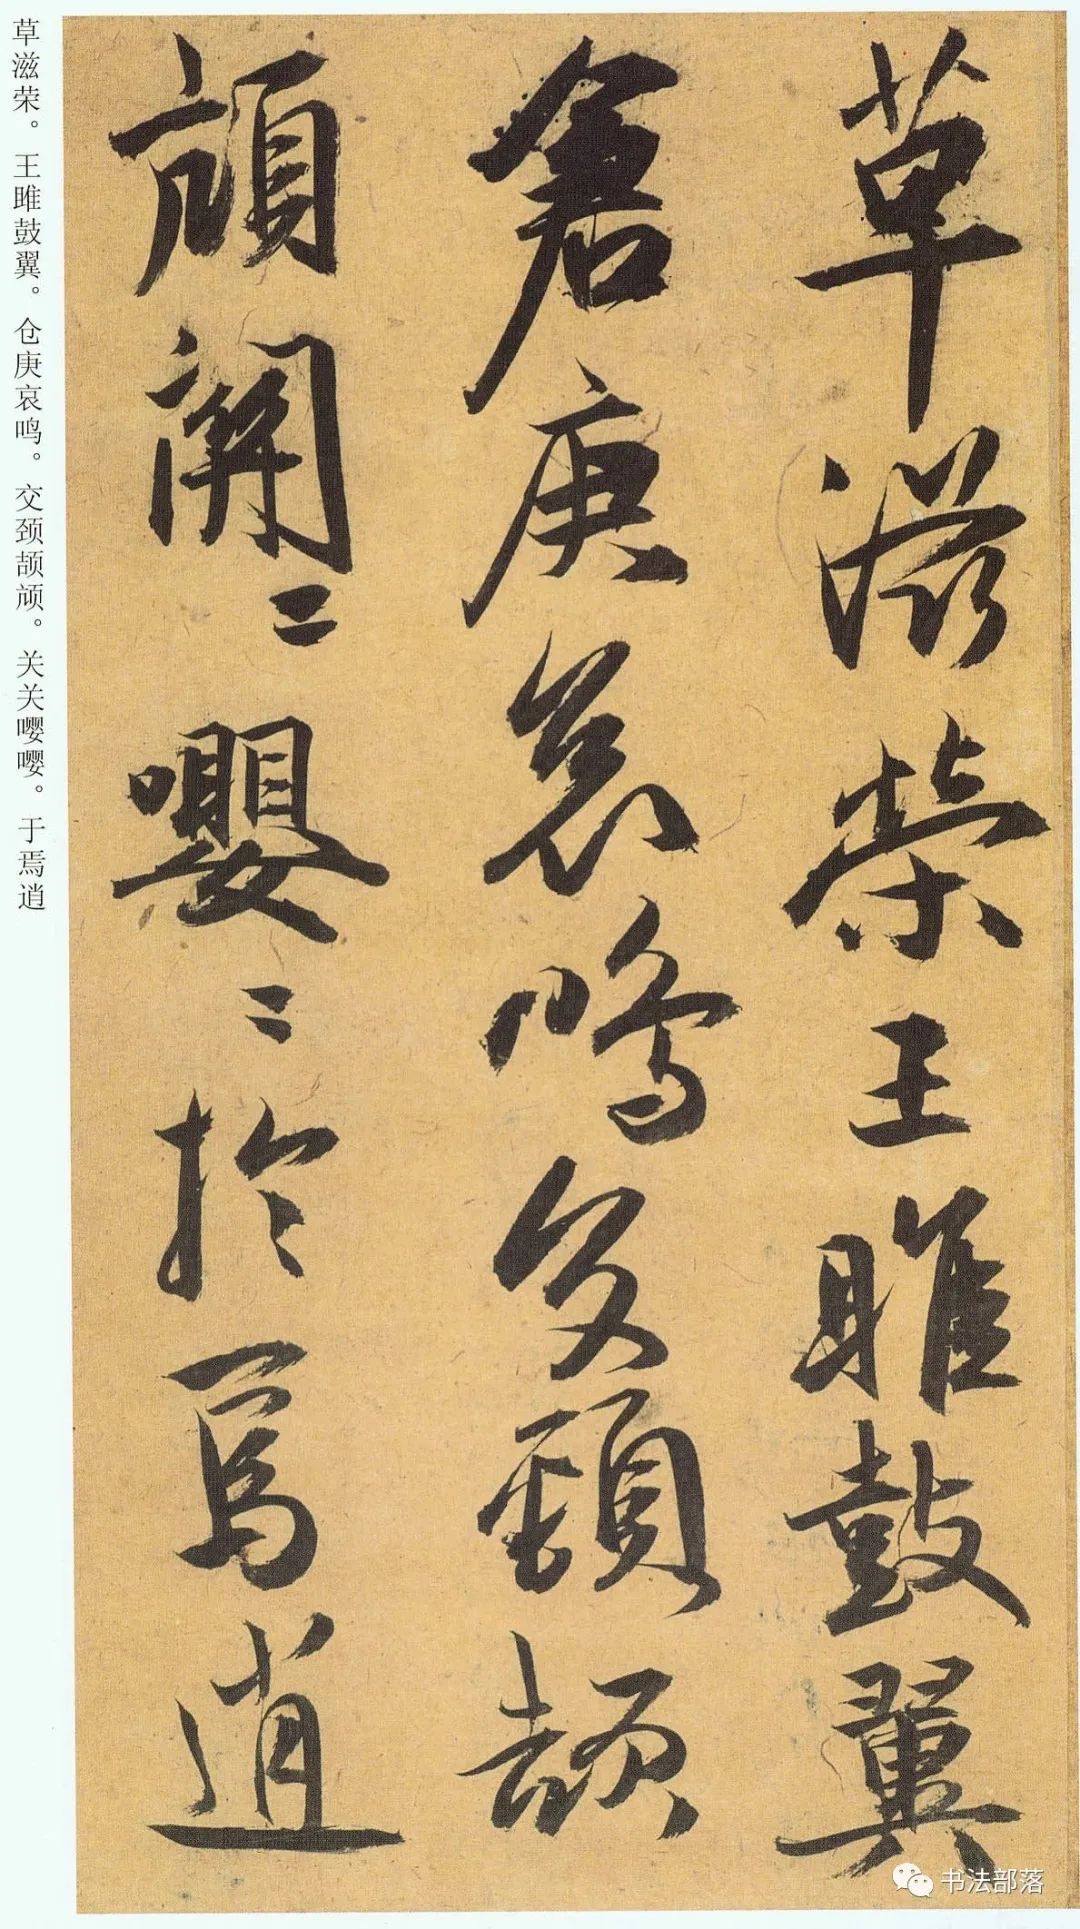 草滋荣王雎鼓翼
倉庚哀鳴交頸頡
頏關〻嚶〻於焉逍
草滋荣。王雎鼓翼。仓庚哀鸣。交颈颉颃。关关嘤嘤。于焉逍
书法部落